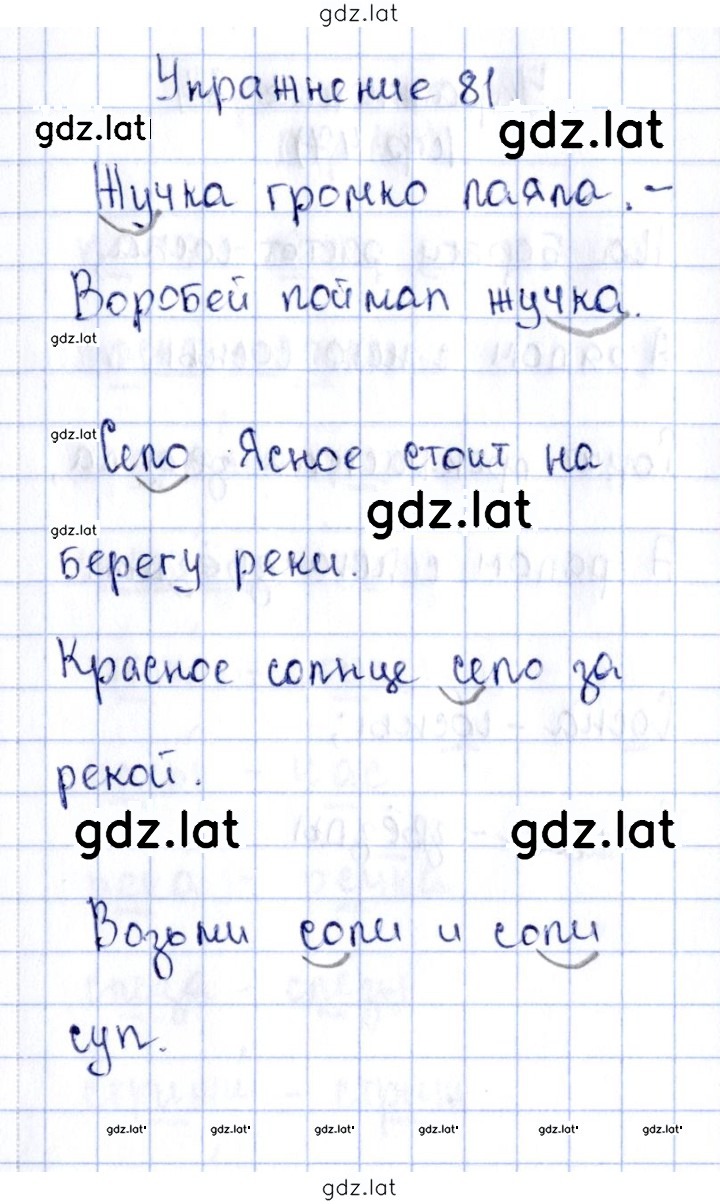 gdz.lat
Упражнение 81
gdz.lat
gdz.lat
Жучка громко лаяла. –
Воробей поймал жучка.
gdz.lat
gdz.lat
Село Ясное стоит на
gdz.lat
gdz.lat
берегу реки.
Красное солнце село за
рекой.
gdz.lat
gdz.lat
Возьми соли и соли
суп.
gdz.lat
gdz.lat
gdz.lat
gdz.lat
gdz.lat
gdz.lat
gdz.lat